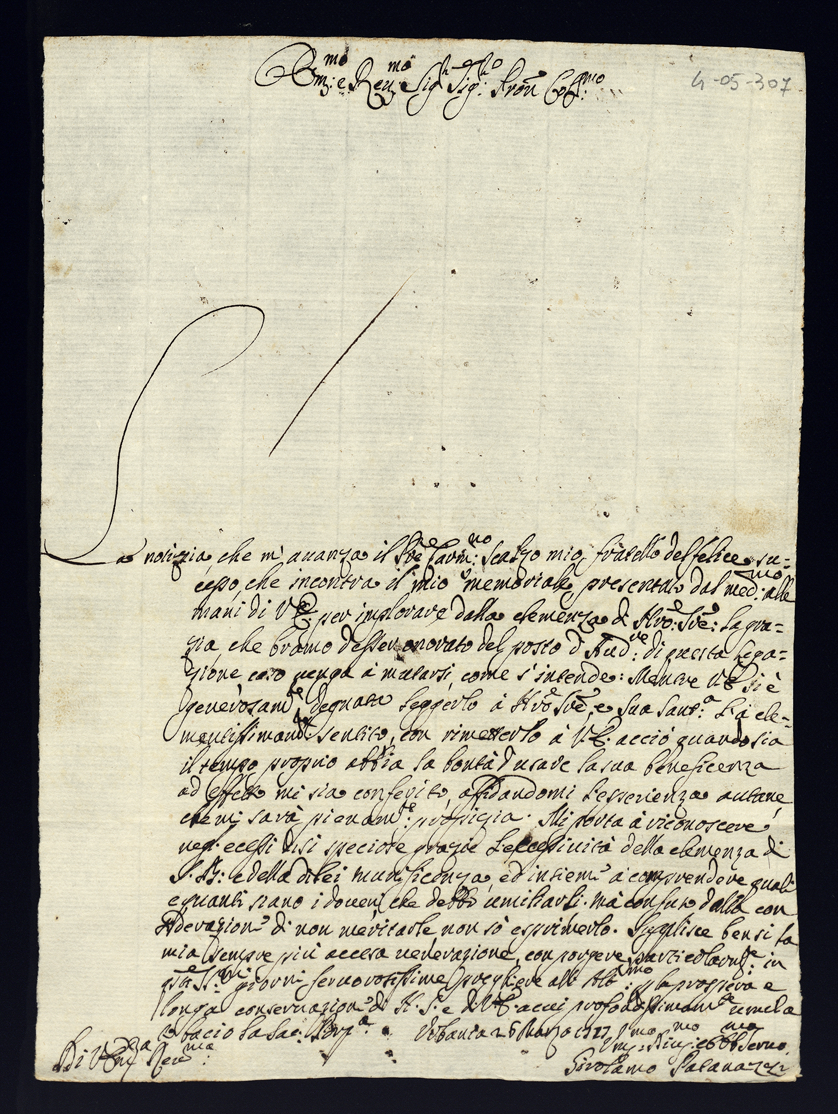 Em:mo e Rev:mo Sig:r Sig:r Pron Col:mo
4-05-307
La notizia che m'avanza il Pre Carm:no Scalzo mio fratello del felice su=
cesso, che incontra il mio memoriale presentato dal med:mo alle
mani di VE per implorare dalla clemenza di Nro Sre: la gra=
zia, che bramo d'esser onorato del posto d'Aud:re di questa Lega=
zione caso venga à mutarsi come s'intende: Mentre VE si è
generosam:te degnata leggerlo à Nro Sre, e Sua Sant:a l'à cle=
mentissimam:te sentito, con rimetterlo à VE. acciò quando sia
il tempo proprio abbia la bontà d'usare la sua beneficenza
ad effetto mi sia conferito, affidandomi l'esperienza
che mi sarà pienam:te propizia. Mi porta à riconoscere
negl'eccessi di si speciose grazie l'eccessività della clemenza di
S. B: e della di lei munificenza, ed insiem a comprendere quali
e quanti siano i doveri che debbo umiliarli. mà confuso dalla con
siderazione di non meritarle non sò esprimerlo. Suplisce bensi la
mia sempre più accesa venerazione, con porgere particolarm:te in
S:ti giorni fervorosissime preghiere all'Alt:mo p la prospera e
longa conservazione di N. S. e di VE. a cui profondissimam:te umil:a
bacio la Sac: Porp:a Urbania 26 Marzo 1727
Di V Em:za Rev:ma
Um:mo Div:mo ed Obb:mo Servo
Girolamo